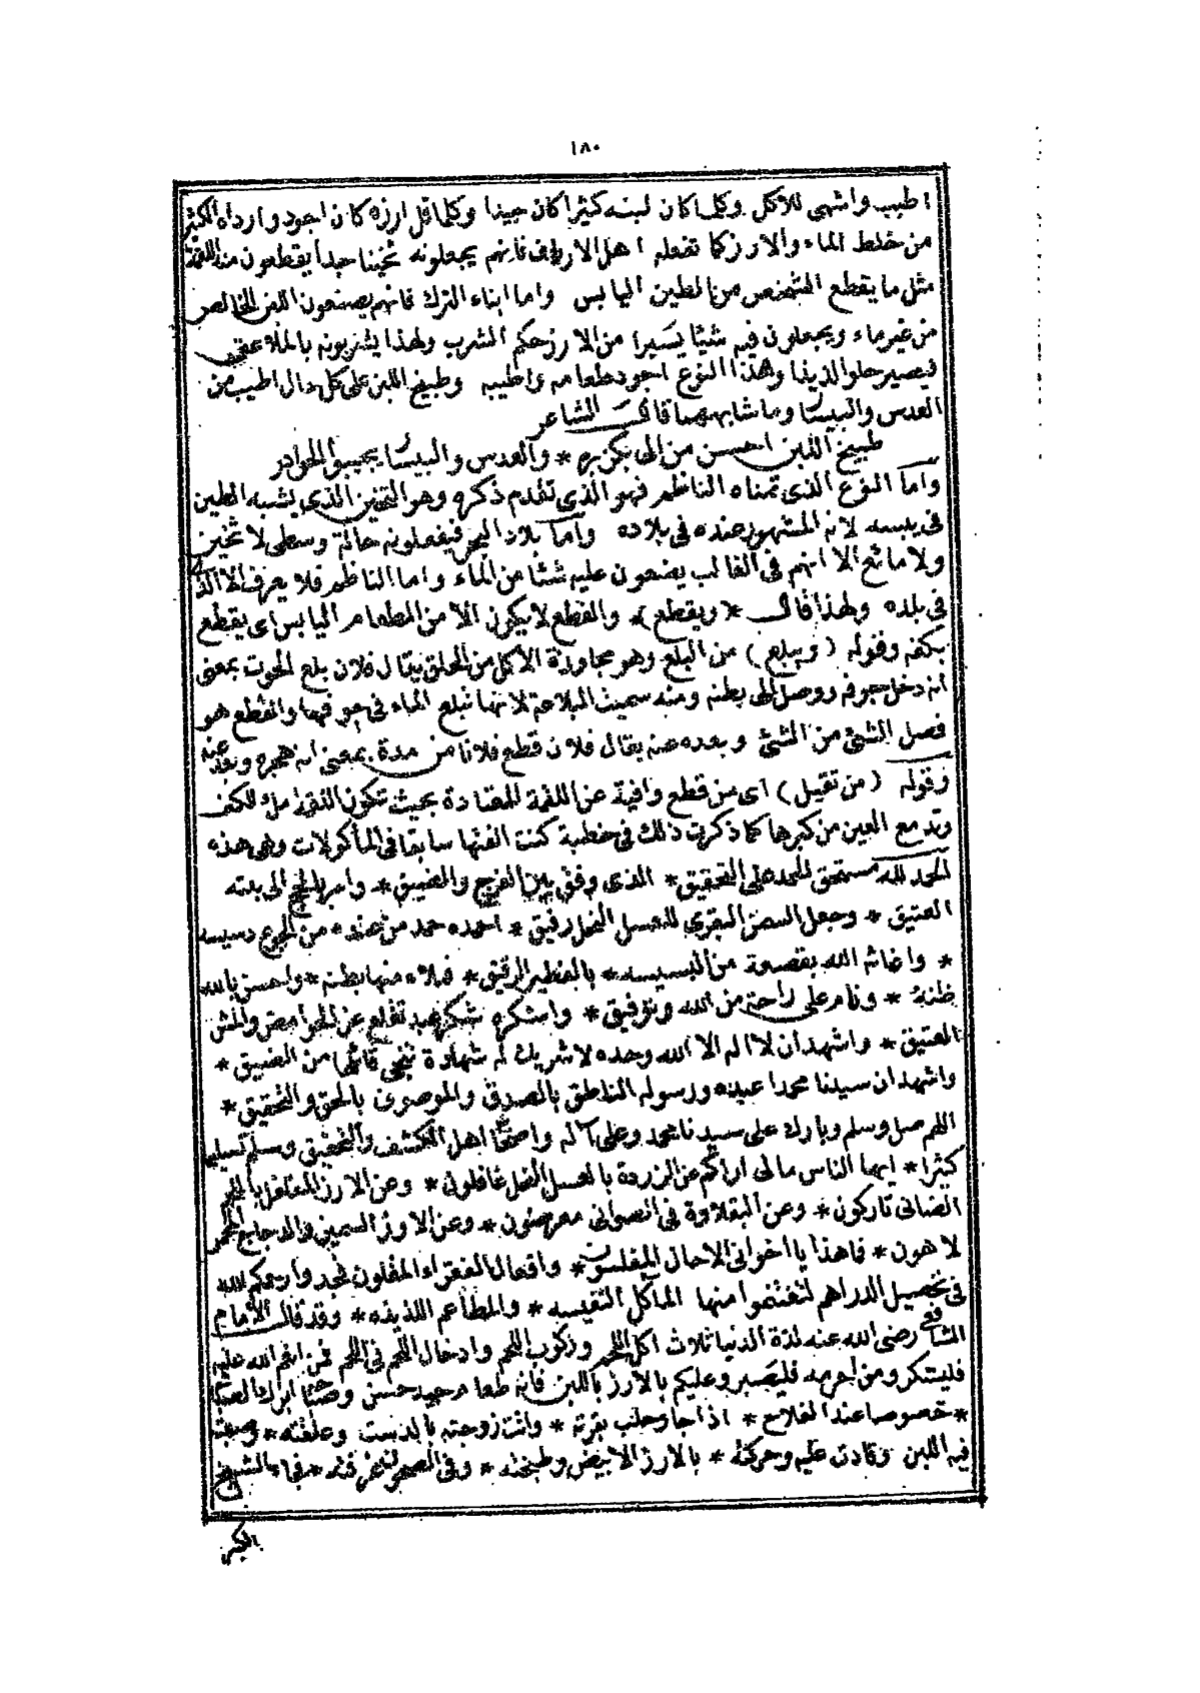 ١٨٠
اطيب واشهى للأكل وكلما كان لبنه كثيرا كان جيدا وكلما قل ارزه كان اجود وارداه الكثير
من خلط الماء والارز كما تفعله اهل الارياف فانهم يجعلونه ثخينا جدا يقطعون منه اللقمة
مثل ما يقطع الشخص من الطين اليابس واما ابناء الترك فانهم يصنعون اللبن الخالص
من غير ماء ويجعلون فيه شيئا يسيرا من الارز حكم المشرب ولهذا يشربونه بالملاعق
فيصير حلوا لذيذا وهذا النوع اجود طعامه واطيبه وطبيخ اللبن على كل حال اطيب من
العدس والبيسار وما شابههما قال الشاعر
طبيخ اللبن احسن من الى بكزبره * والعدس والبيسار يجيبوا الخوادر
واما النوع الذى تمناه الناظم فهو الذى تقدم ذكره وهو الثخين الذى يشبه الطين
فى يبسه لانه المشهور عنده فى بلاده واما بلاد البحر فيفعلونه حالة وسطى لا ثخين
ولا مائع الا انهم فى الغالب يضعون عليه شيئا من الماء واما الناظم فلا يعرف الا الذى
فى بلده ولهذا قال * (ويقطع) * والقطع لا يكون الا من الطعام اليابس اى يقطع
بكفه وقوله (ويبلع) من البلع وهو مجاوزة الاكل من الحلق يقال فلان بلع الحوت بمعنى
انه دخل جوفه ووصل الى بطنه ومنه سميت البلاعة لانها تبلع الماء فى جوفها والقطع هو
فصل الشئ من الشئ وبعده عنه يقال فلان قطع فلانا من مدة بمعنى انه هجره وبعد عنه
وقوله (من تقيل) اى من قطع وافية عن اللقمة المعتادة بحيث تكون اللقمة ملو الكف
وتدمع العين من كبرها كما ذكرت ذلك فى خطبة كنت الفتها سابقا فى المأكولات وهى هذه
الحمد لله مستحق الحمد على التحقيق * الذى وفق بين الفرج والضيق * وامر بالحج الى بيته
العتيق * وجعل السمن البقرى للعسل النحل رفيق * احمده حمد من عنده من الجوع دسيسه
* واغاثه الله بقصعة من البسيسه * بالفطير الرقيق * فملأ منها بطنه * واحسن بالله
ظنه * ونام على راحة من الله وتوفيق * واشكره شكر عبد تقلع عن الحوامض والمش
العتيق * واشهد ان لا اله الا الله وحده لا شريك له شهادة تنجى قائلها من الضيق *
واشهد ان سيدنا محمدا عبده ورسوله الناطق بالصدق والموصى بالحق والتحقيق *
اللهم صل وسلم وبارك على سيدنا محمد وعلى آله واصحابه اهل الكشف والتحقيق وسلم تسليما
كثيرا * ايها الناس مالى اراكم عن الزردة بالعسل النحل غافلون * وعن الارز المفلفل باللحم
الضانى تاركون * وعن البقلاوة فى الصوانى معرضون * وعن الاوز السمين والدجاج المحمر
لاهون * فما هذا يا اخوانى الا حال المفلسون * وافعال الفقراء المقلون فجدوا رحمكم الله
فى تحصيل الدراهم لتغتنموا منها المآكل النفيسه * والمطاعم اللذيذه * وقد قال الامام
الشافعى رضى الله عنه لذة الدنيا ثلاث اكل اللحم وركوب اللحم وادخال اللحم فى اللحم فمن انعم الله عليه
فليشكر ومن لم يجد فليصبر وعليكم بالارز باللبن فانه طعام جيد حسن
* خصوصا عند الفلاح * اذا جا وحلب بقرته * وانت زوجته بالدست وعلقته * وصبت
فيه اللبن وقادت عليه وحركته * بالارز الابيض وطبخته * وفى الصحون غرفته * فجاء الشيخ